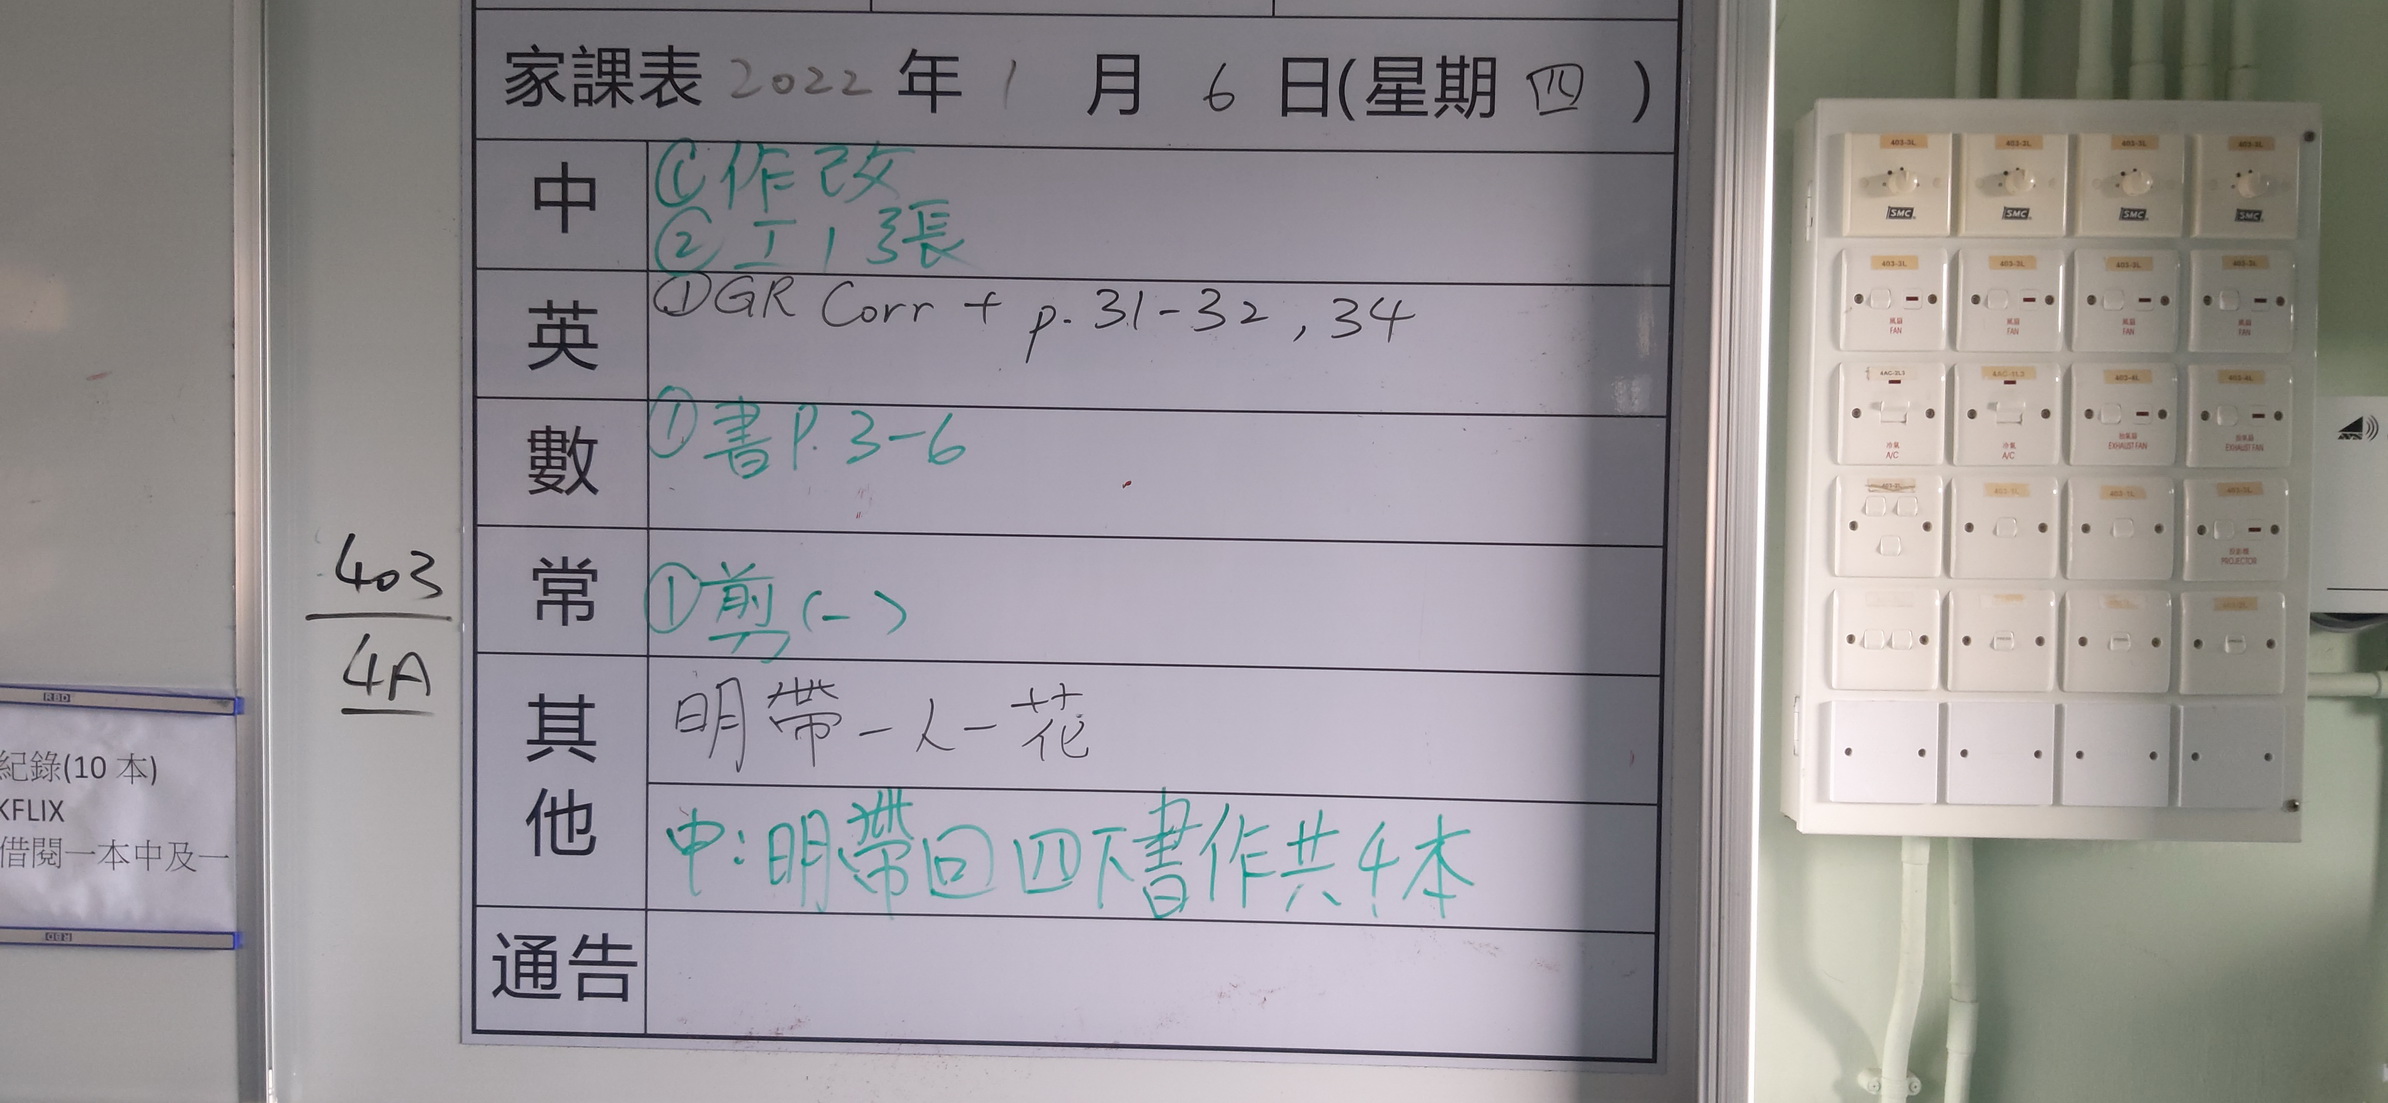 家課表 2022 年 1 月 6 日(星期 四 )
中
① 作改
② 工1張
英
① GR Corr + p. 31-32, 34
數
① 書P. 3-6
常
① 剪(一)
其他
明帶一人一花
中:明帶回四下書作共4本
通告
403
4A
RBD
紀錄(10 本)
KFLIX
借閱一本中及一
403-3L
403-2L
403-3L
SMC
SMC
SMC
SMC
403-2L
403-2L
403-2L
風扇
FAN
風扇
FAN
風扇
FAN
風扇
FAN
4AC-2L3
403-4L
冷氣
A/C
冷氣
A/C
抽氣扇
EXHAUST FAN
抽氣扇
EXHAUST FAN
投影機
PROJECTOR